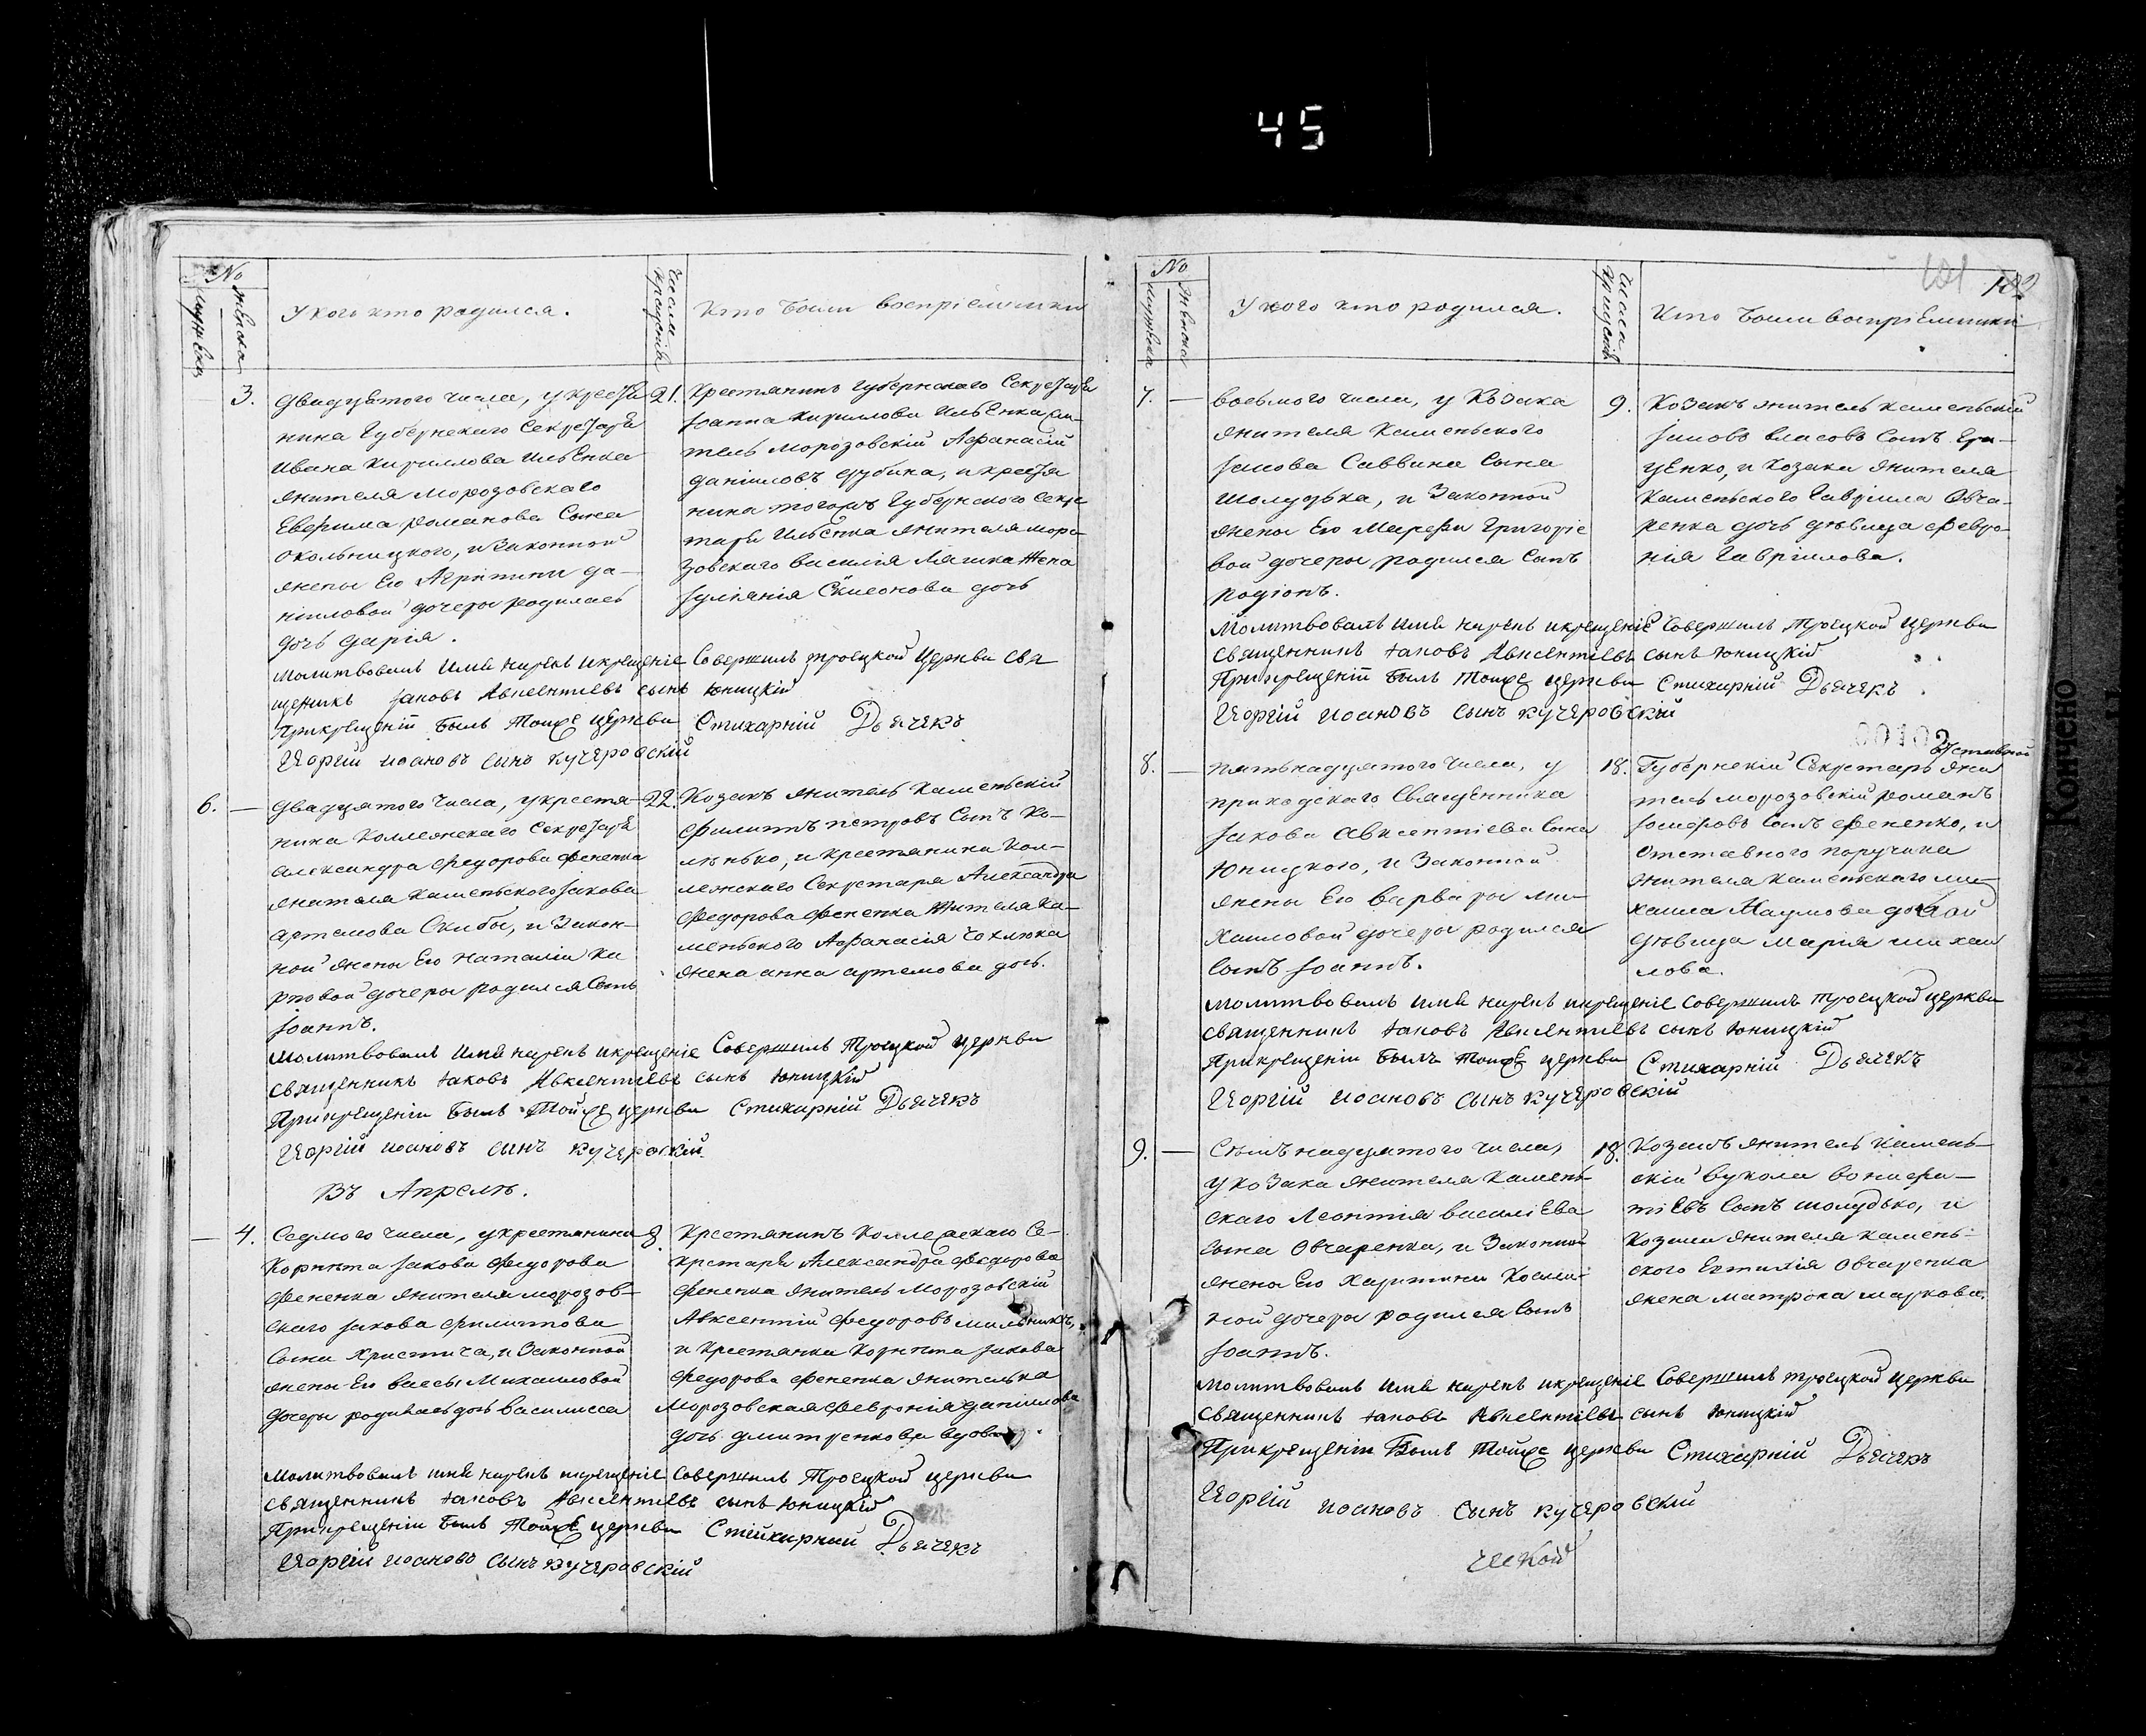 45
No
мужеска
женска
У кого кто родился.
Числа крещенiя
Кто были воспрiемники
3.
двадцятого числа, у крестя
нина Губернскаго Секретаря
Ивана Кириллова Ильенка
жителя Морозовскаго
Евфима Романова сына
Окольницкого, и законной
жены Его Агрипини да-
нiиловой дочеры родилась
дочь Дарiя.
21.
Крестянинъ Губернскаго Секретаря
Iоанна Кириллова Ильенка жи-
тель Морозовскiй Афанасiй
Данiиловъ, и крестя
нина тогожъ Губернского Секре
таря Ильенка жителя Моро
зовскаго Василiя Ляшка жена
Iулiянiя Симеонова дочь
Молитвовалъ имя нарекъ и крещенiе Совершилъ Троецкой Церкви Свя
щеникъ Iаковъ Авксентiевъ сынъ Юницкiй
При крещенiи былъ тойже церкви Стихарнiй Дьячекъ
Георгiй Iоановъ сынъ Кучеровскiй
6.
двадцятого числа, у крестя-
нина Коллежскаго Секретаря
Александра Федорова Фененка
жителя Каменьского Iакова
Артемова Скибы, и закон-
ной жены Его Наталiи Ка
рповой дочеры родился сынъ
Iоаннъ.
22.
Козакъ житель Каменьскiй
Филиппъ Петровъ сынъ Ко-
лѣнько, и крестянина Кол-
лежскаго Секретаря Александра
Федорова Фененка жителя Ка-
меньского Афанасiя Чохлюка
жена Анна Артемова дочь.
Молитвовалъ имя нарекъ и крещенiе Совершилъ Троецкой церкви
священникъ Iаковъ Авксентiевъ сынъ Юницкiй
При крещенiи былъ тойже церкви Стихарнiй Дьячекъ
Георгiй Iоановъ сынъ Кучеровскiй
Въ Апрелѣ.
4.
Седмого числа, у крестянина
Корнѣта Iакова Федорова
Фененка жителя Морозов-
скаго Iакова Филиппова
сына Христича, и законной
жены Его Вассы Михаиловой
дочеры родилась дочь Василисса
8.
Крестянинъ Коллежскаго Се-
кретаря Александра Федорова
Фененка житель Морозовскiй
Авксентiй Федоровъ Мильникъ,
и крестянка Корнѣта Iакова
Федорова Фененка жителька
Морозовская Февронiя Данiилова
дочь Дмитренкова вдова.
Молитвовалъ имя нарекъ и крещенiе Совершилъ Троецкой церкви
священникъ Iаковъ Авксентiевъ сынъ Юницкiй
При крещенiи былъ тойже церкви Стихарнiй Дьячекъ
Георгiй Iоановъ сынъ Кучеровскiй
101
102
No
мужеска
женска
У кого кто родился.
Числа крещенiя
Кто были воспрiемники
7.
восьмого числа, у Козака
жителя Каменьского
Iакова Саввина сына
Шолудька, и законной
жены Его Марфы Григорiе
вой дочеры родился сынъ
Родiонъ.
9.
Козакъ житель Каменьскiй
Iаковъ Власовъ сынъ Гри-
ценко, и козака жителя
Каменьского Гаврiила Овча-
ренка дочь дѣвица Февро-
нiя Гаврiилова.
Молитвовалъ имя нарекъ и крещенiе Совершилъ Троецкой церкви
священникъ Iаковъ Авксентiевъ сынъ Юницкiй
При крещенiи былъ тойже церкви Стихарнiй Дьячекъ
Георгiй Iоановъ сынъ Кучеровскiй
00102
8.
Пятьнадцятого числа, у
приходскаго Священника
Iакова Авксентiева сына
Юницкого, и законной
жены Его Варвары Ми-
хаиловой дочеры родился
сынъ Iоаннъ.
18.
Отставной
Губернскiй Секретарь жи
тель Морозовскiй Романъ
сынъ Фененко, и
Отставного Поручика
жителя Каменьскаго Ми-
хаила Наумова
дѣвица Марiя Михаи
лова.
Молитвовалъ имя нарекъ и крещенiе Совершилъ Троецкой церкви
священникъ Iаковъ Авксентiевъ сынъ Юницкiй
При крещенiи былъ тойже церкви Стихарнiй Дьячекъ
Георгiй Iоановъ сынъ Кучеровскiй
9.
Семьнадцятого числа,
у козака жителя Камень-
скаго Леонтiя Василiева
сына Овчаренка, и законной
жены Его Харитины Косми-
ной дочеры родился сынъ
Iоаннъ.
18.
Козакъ житель Камень-
скiй Вукола Вонифа-
тiевъ сынъ Шолудько, и
козака жителя Камень-
ского Евтихiя Овчаренка
жена Матрона Маркова.
Молитвовалъ имя нарекъ и крещенiе Совершилъ Троецкой церкви
священникъ Iаковъ Авксентiевъ сынъ Юницкiй
При крещенiи былъ тойже церкви Стихарнiй Дьячекъ
Георгiй Iоановъ сынъ Кучеровскiй
ческой
Кончено